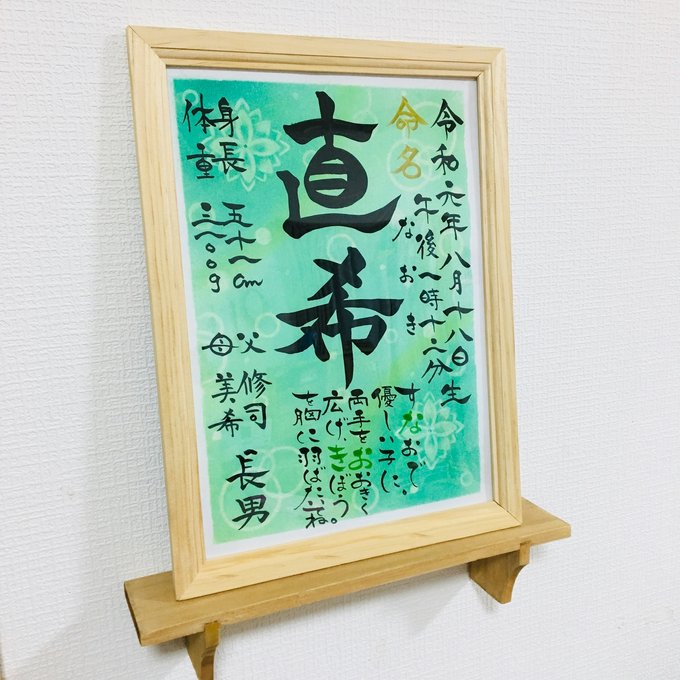 令和元年八月十八日生
午後一時十二分
命名
なおき
直希
すなおで、
優しい子に、
両手をおおきく
広げ、きぼう
を胸に羽ばたいてね。
身長 五十一cm
体重 三一〇〇g
父 修司
母 美希
長男